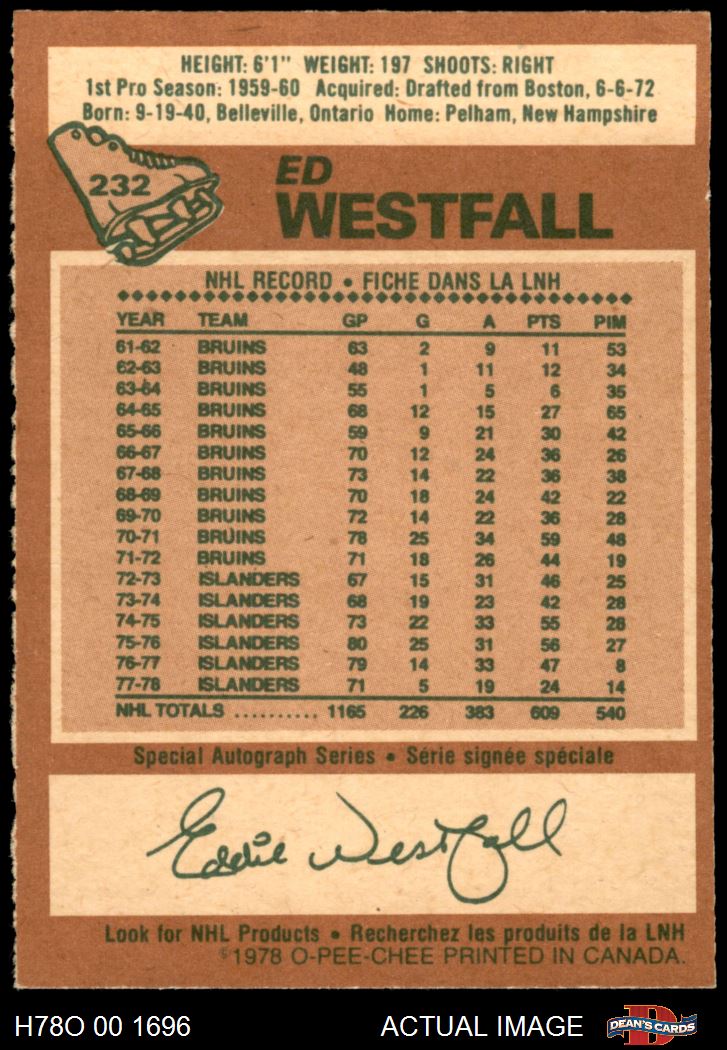 HEIGHT: 6'1" WEIGHT: 197 SHOOTS: RIGHT
1st Pro Season: 1959-60 Acquired: Drafted from Boston, 6-6-72
Born: 9-19-40, Belleville, Ontario Home: Pelham, New Hampshire
232
ED
WESTFALL
NHL RECORD • FICHE DANS LA LNH
YEAR TEAM GP G A PTS PIM
61-62 BRUINS 63 2 9 11 53
62-63 BRUINS 48 1 11 12 34
63-64 BRUINS 55 1 5 6 35
64-65 BRUINS 68 12 15 27 65
65-66 BRUINS 59 9 21 30 42
66-67 BRUINS 70 12 24 36 26
67-68 BRUINS 73 14 22 36 38
68-69 BRUINS 70 18 24 42 22
69-70 BRUINS 72 14 22 36 28
70-71 BRUINS 78 25 34 59 48
71-72 BRUINS 71 18 26 44 19
72-73 ISLANDERS 67 15 31 46 25
73-74 ISLANDERS 68 19 23 42 28
74-75 ISLANDERS 73 22 33 55 28
75-76 ISLANDERS 80 25 31 56 27
76-77 ISLANDERS 79 14 33 47 8
77-78 ISLANDERS 71 5 19 24 14
NHL TOTALS .......... 1165 226 383 609 540
Special Autograph Series • Série signée spéciale
Eddie Westfall
Look for NHL Products • Recherchez les produits de la LNH
©1978 O-PEE-CHEE PRINTED IN CANADA.
H78O 00 1696 ACTUAL IMAGE DEAN'S CARDS